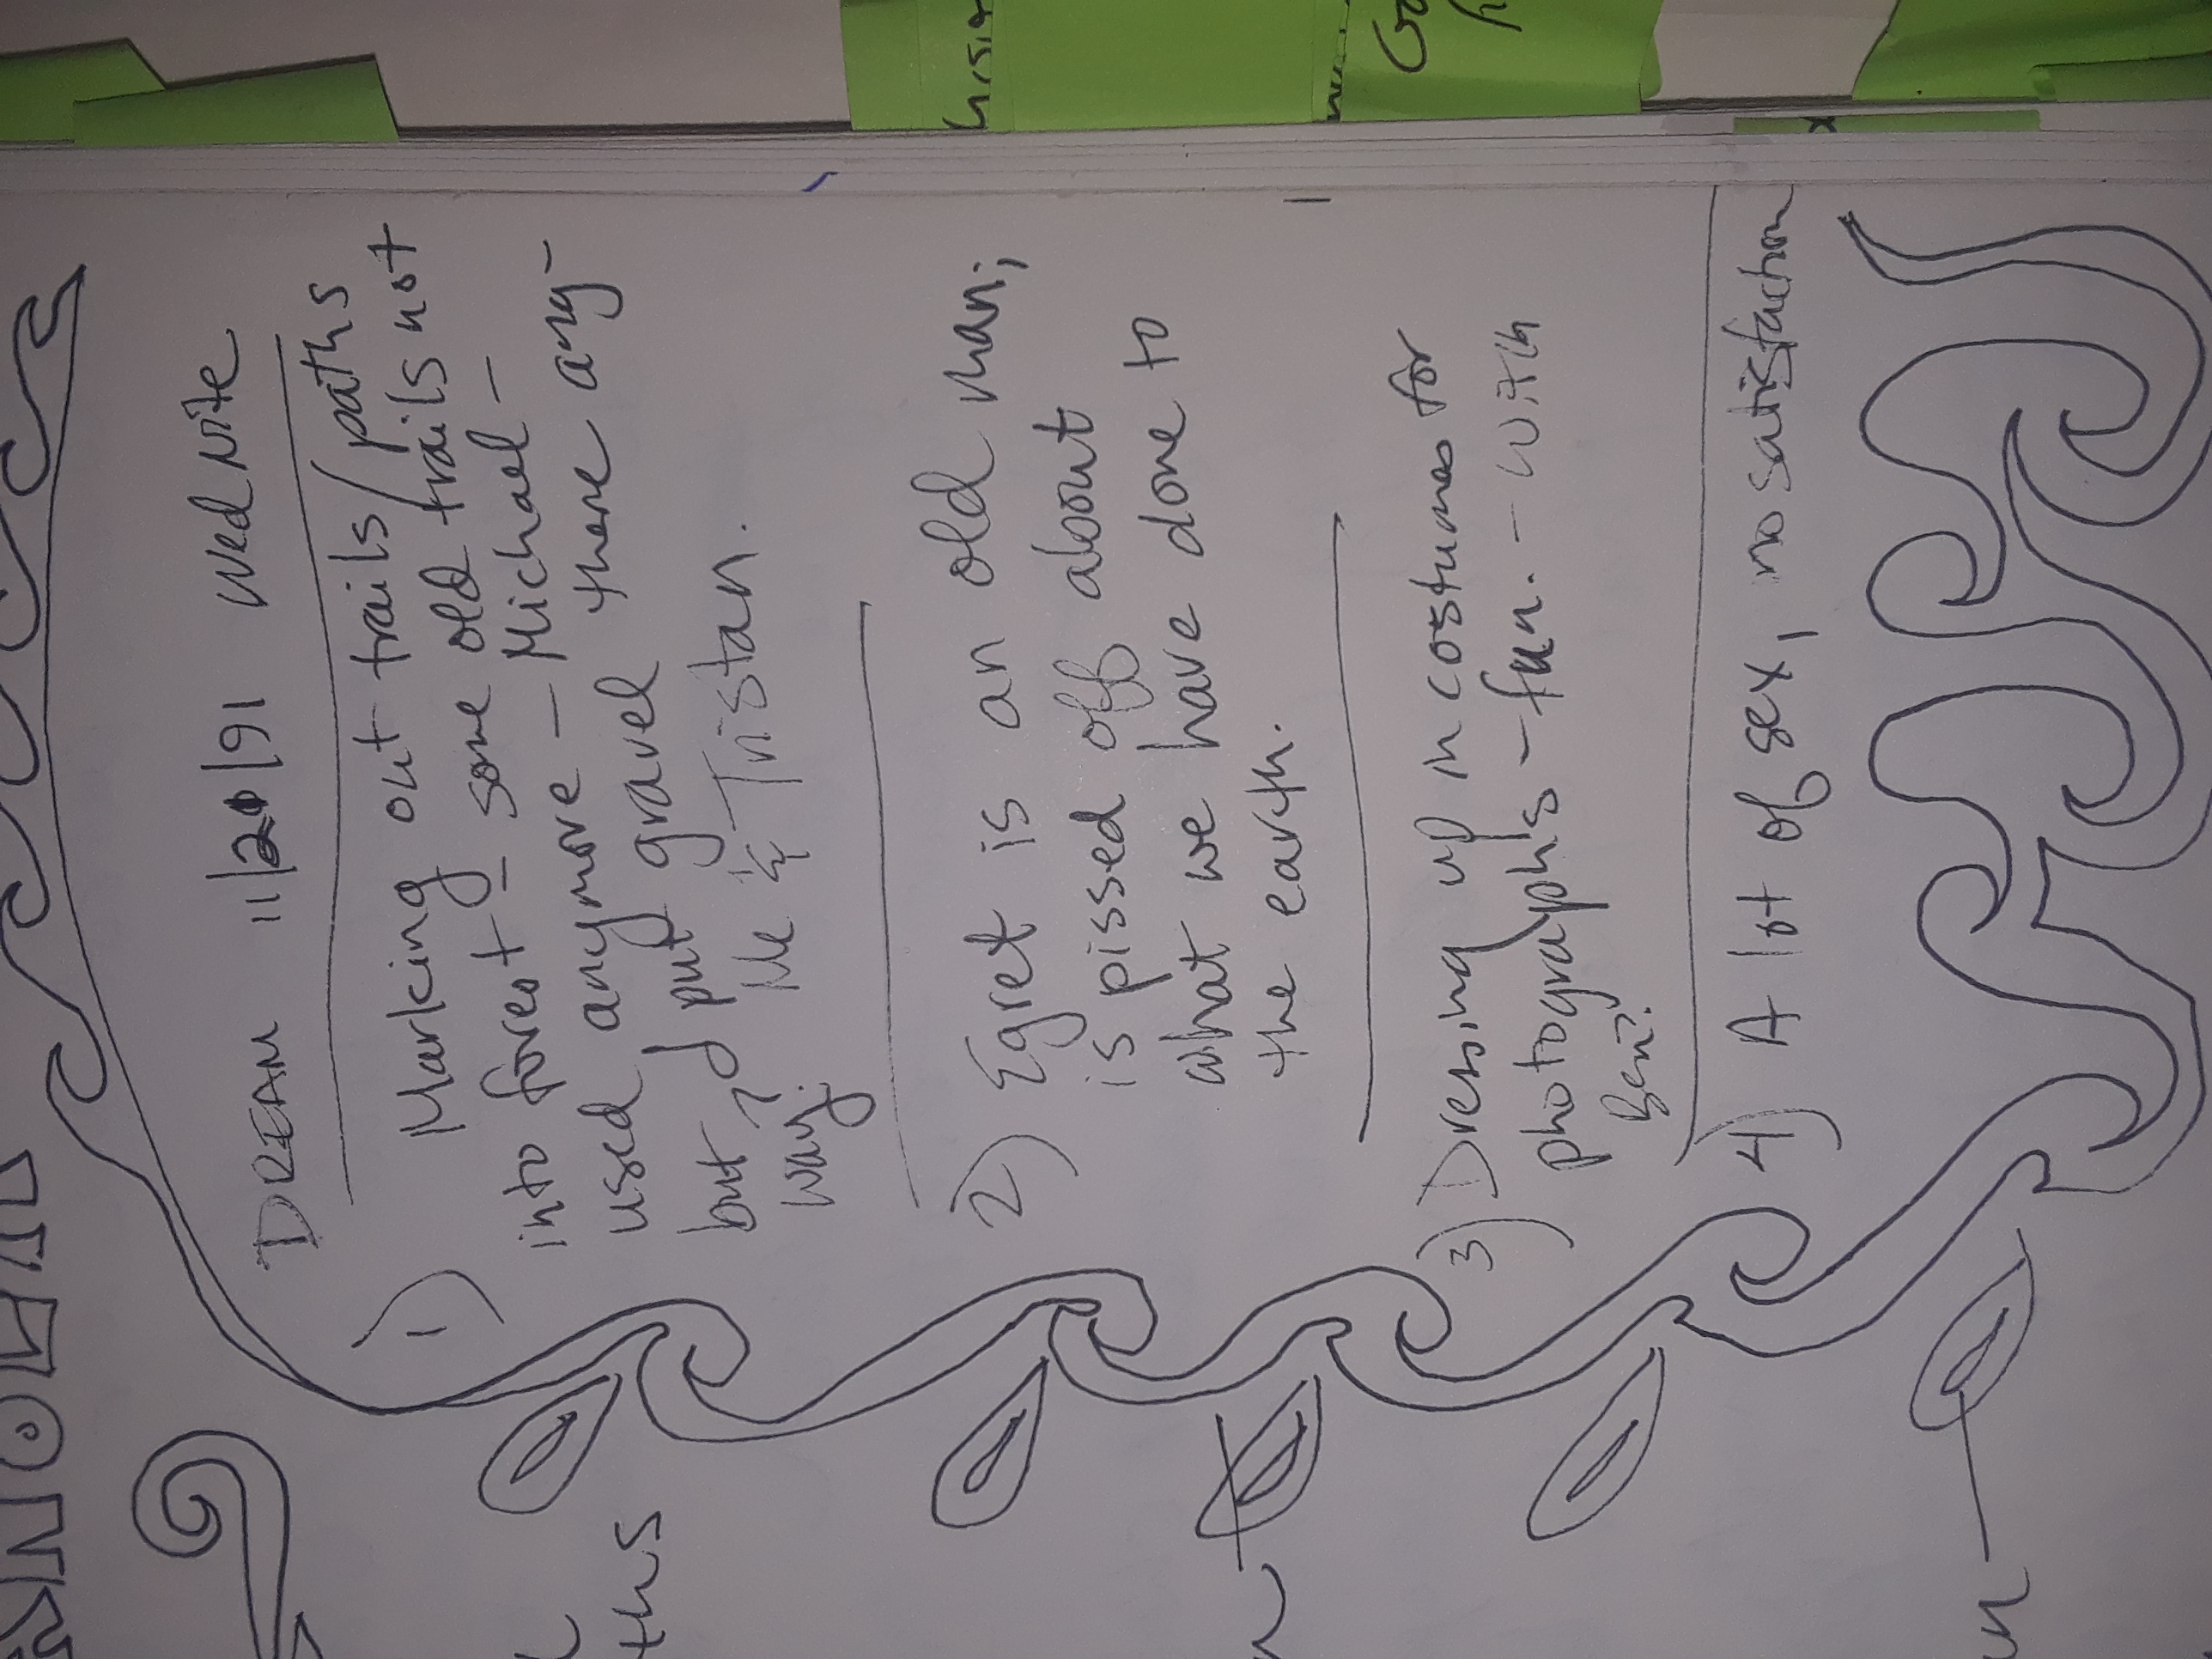 DREAM 11/20/91 Wed Nite
1) Marking out trails/paths
into forest – some old trails not
used anymore – Michael –
but I put gravel there any-
way. Me & Tristan.
2) Egret is an old man;
is pissed off about
what we have done to
the earth.
3) Dressing up in costumes for
photographs – fun. – with
Ben?
4) A lot of sex, no satisfaction
ths